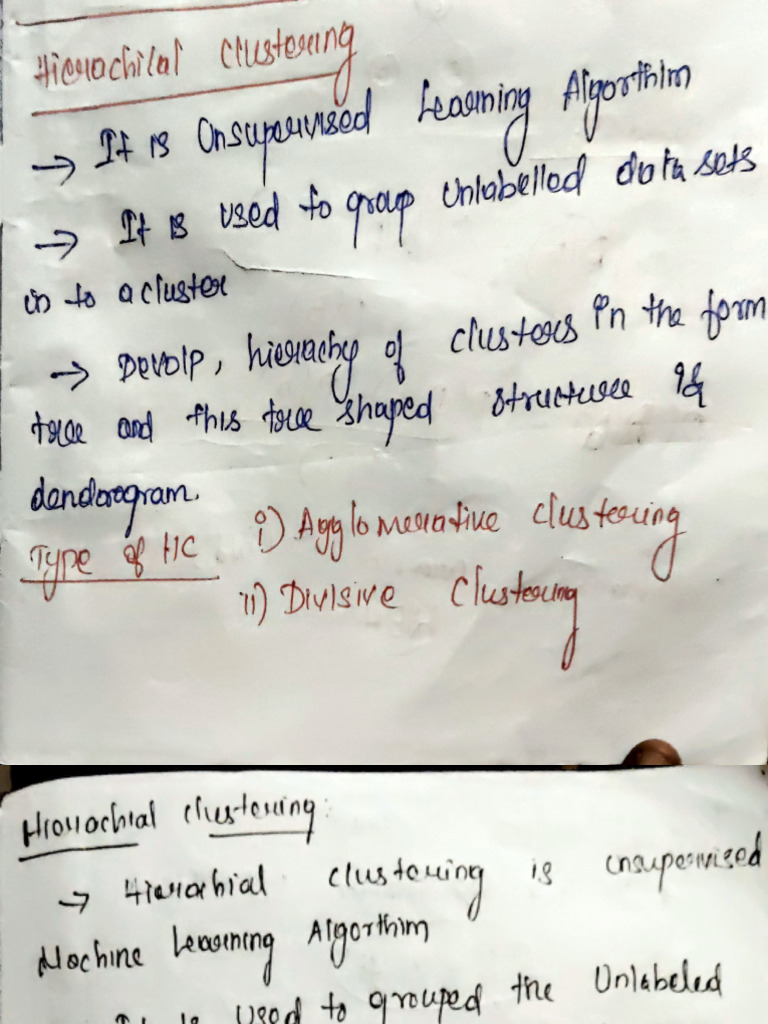 Hierachical Clustering
→ It is Unsupervised Learning Algorthim
→ It is used to group Unlabelled data sets
in to a cluster
→ Devolp, hierachy of clusters in the form
tree and this tree shaped structure is
dendorogram.
Type of HC i) Agglomerative clustering
ii) Divisive Clustering
Hierrachial clustering:
→ Hierarhial clustering is unsupervised
Machine Learning Algorthim
It is used to grouped the Unlabeled